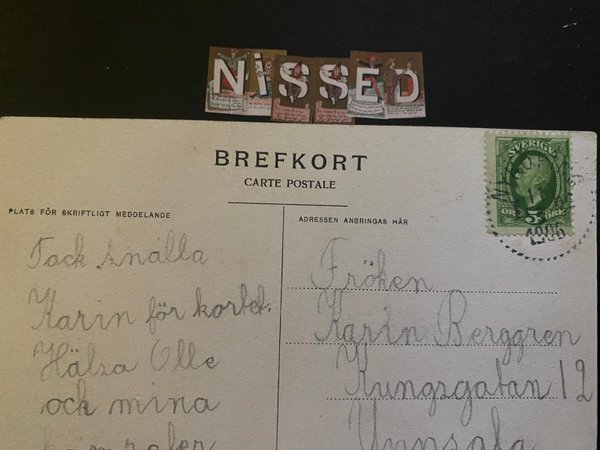 NiSSED
BREFKORT
CARTE POSTALE
PLATS FÖR SKRIFTLIGT MEDDELANDE
ADRESSEN ANBRINGAS HÄR
SVERIGE
5
ÖRE
1906
Tack snälla
Karin för kortet.
Hälsa Olle
och mina
kamrater
Fröken
Karin Berggren
Kungsgatan 12
Uppsala